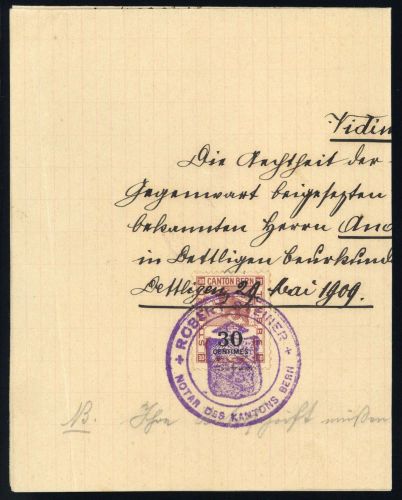 Vidim
Die Aechtheit der
Gegenwart beigesetzten
bekannten Herrn And
in Dettligen beurkund
Dettligen, 29. Mai 1909.
CANTON BERN
30
CENTIMES
ROBERT STEINER
NOTAR DES KANTONS BERN
NB. Ihre müssen